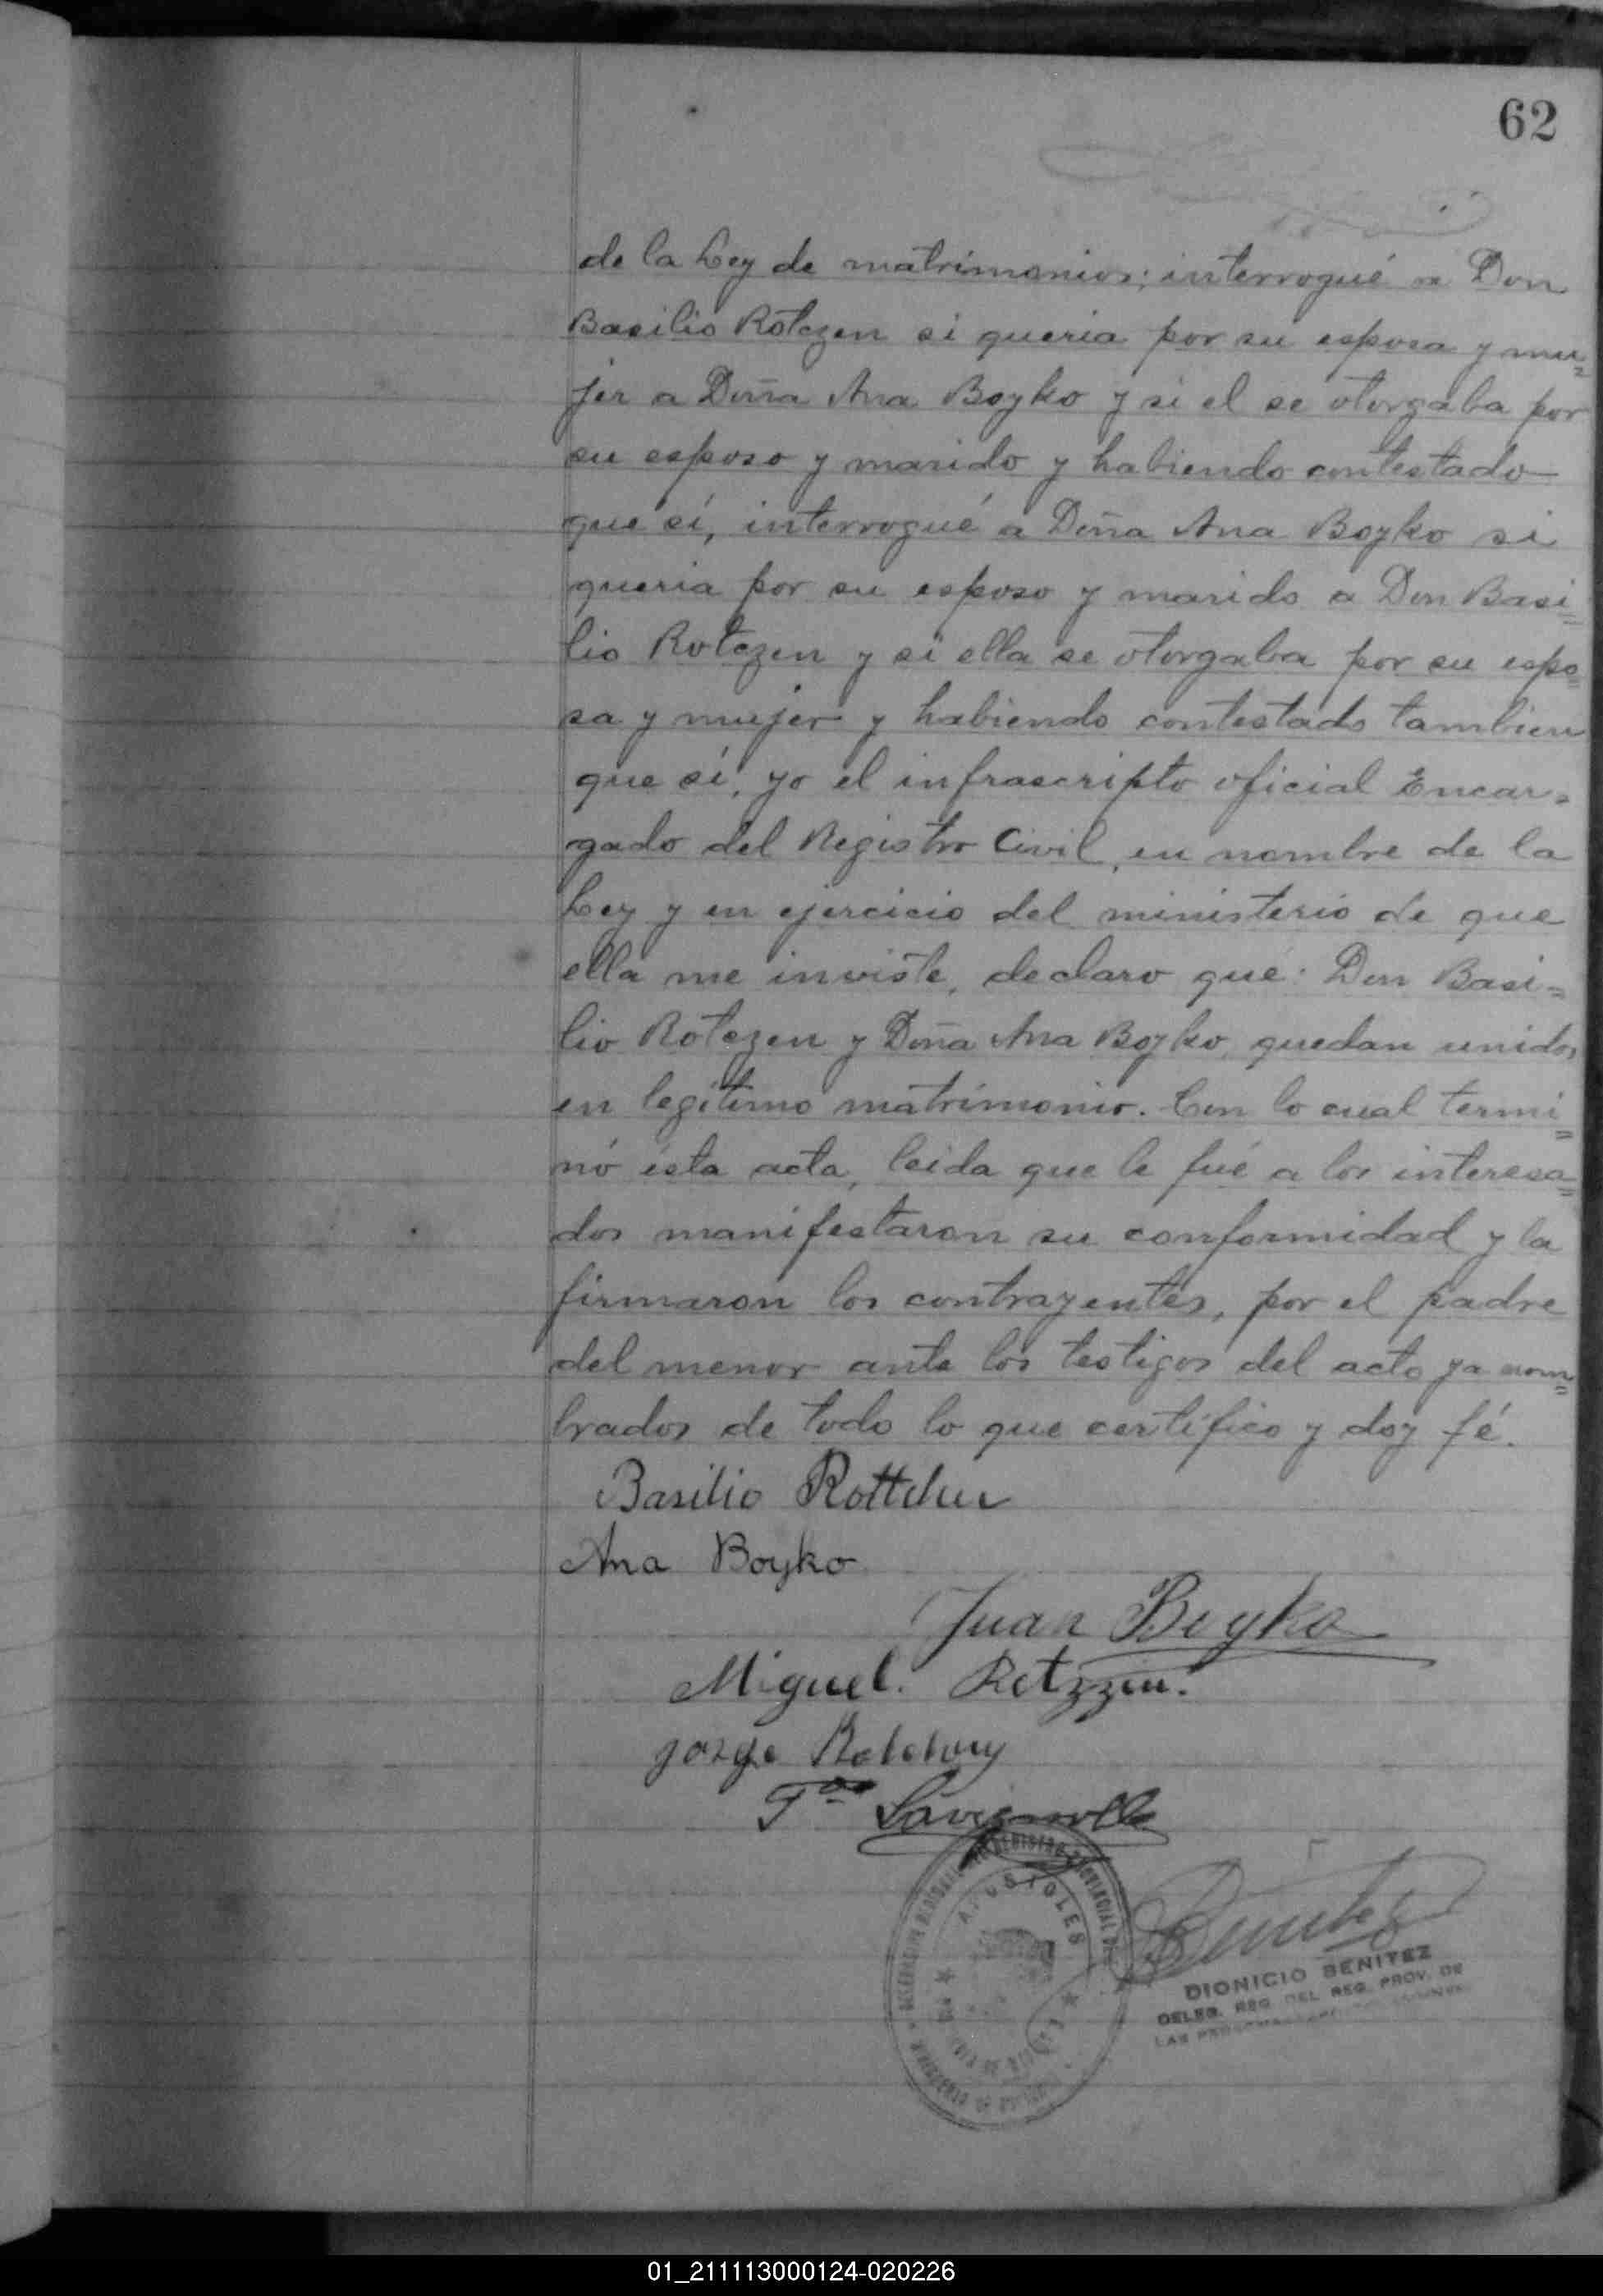 62
de la Ley de matrimonios; interrogué a Don
Basilio Rotczen si queria por su esposa y mu=
jer a Doña Ana Boyko y si el se otorgaba por
su esposo y marido y habiendo contestado
que sí, interrogué a Doña Ana Boyko si
queria por su esposo y marido a Don Basi=
lio Rotczen y si ella se otorgaba por su espo=
sa y mujer y habiendo contestado tambien
que sí, yo el infrascripto oficial Encar=
gado del Registro Civil, en nombre de la
Ley y en ejercicio del ministerio de que
ella me inviste, declaro que: Don Basi=
lio Rotczen y Doña Ana Boyko, quedan unidos
en legítimo matrimonio. Con lo cual termi=
nó ésta acta, leida que le fué a los interesa=
dos manifestaron su conformidad y la
firmaron los contrayentes, por el padre
del menor ante los testigos del acto ya nom=
brados de todo lo que certifico y doy fé.
Basilio
Ana Boyko
Juan Boyko
Miguel.
Jorge
Benitez
APOSTOLES
DIONICIO BENITEZ
DELEG. REG. DEL REG. PROV. DE
LAS
01_211113000124-020226